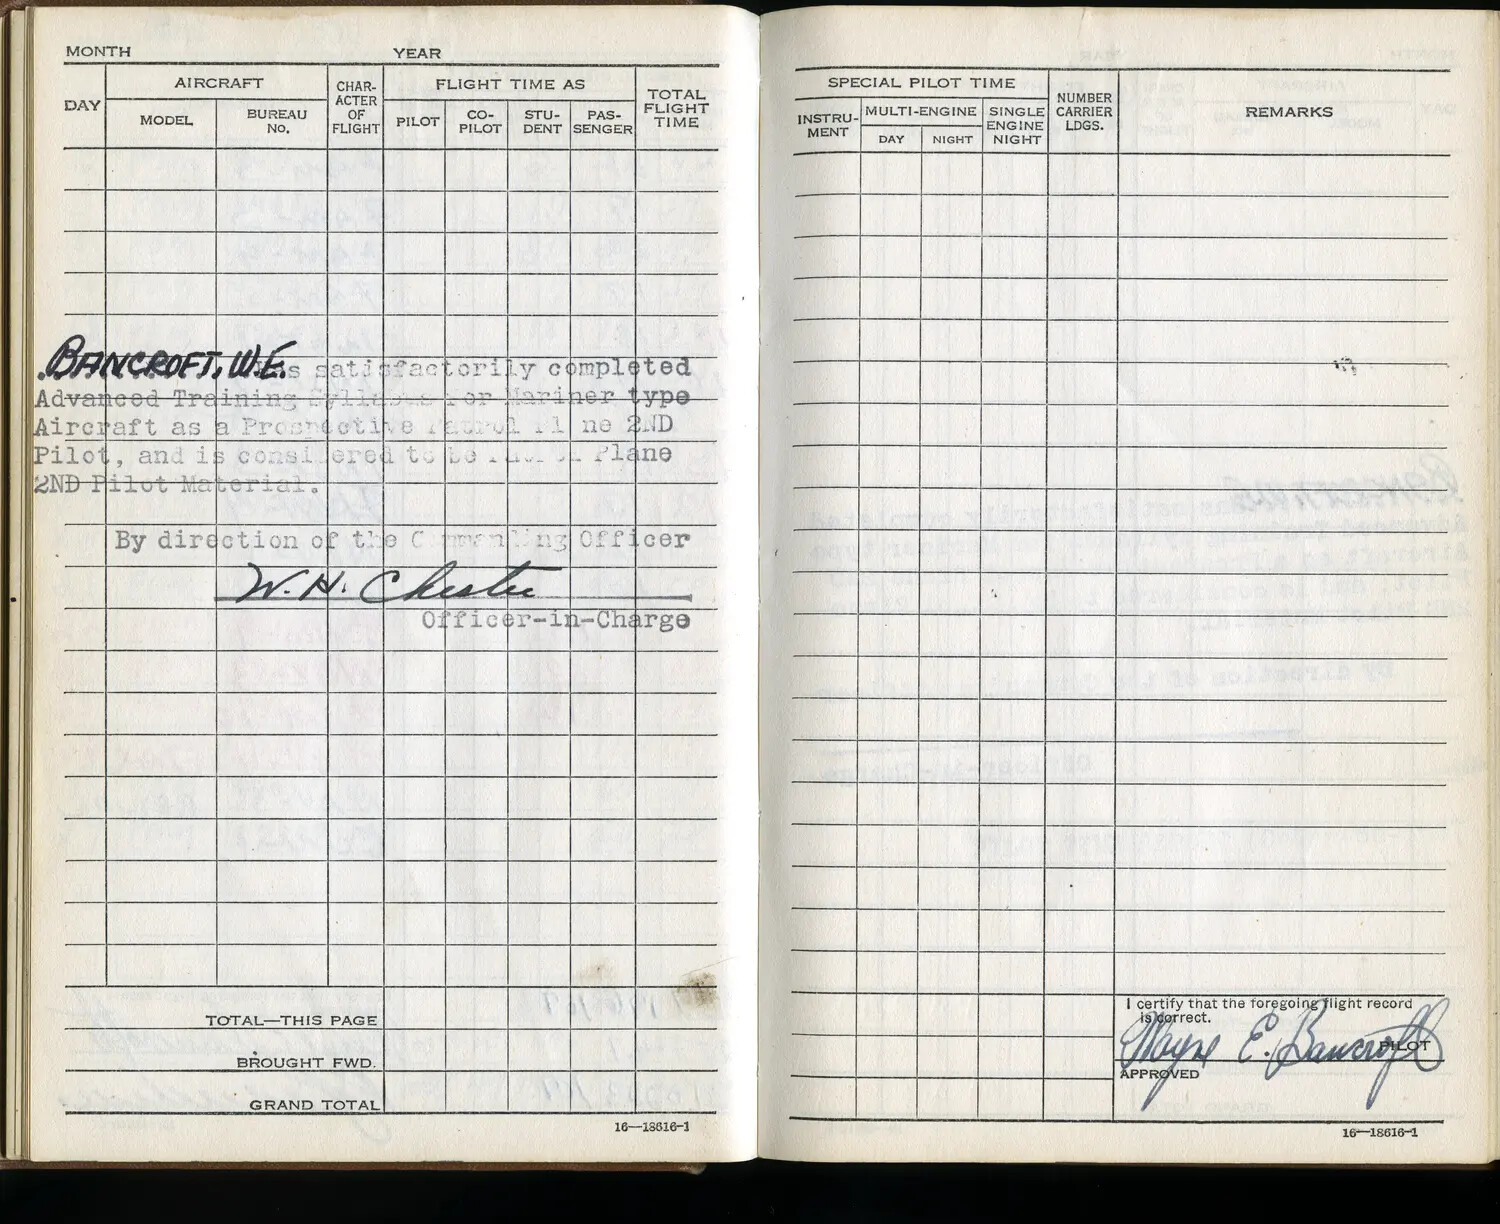 MONTH YEAR
DAY AIRCRAFT CHAR-ACTER OF FLIGHT FLIGHT TIME AS TOTAL FLIGHT TIME
MODEL BUREAU NO. PILOT CO-PILOT STU-DENT PAS-SENGER
BANCROFT, W.E. has satisfactorily completed
Advanced Training Syllabus for Mariner type
Aircraft as a Prospective Patrol Plane 2ND
Pilot, and is considered to be Patrol Plane
2ND Pilot Material.
By direction of the Commanding Officer
W. H. Chester
Officer-in-Charge
TOTAL—THIS PAGE
BROUGHT FWD.
GRAND TOTAL
16—18616-1
SPECIAL PILOT TIME NUMBER CARRIER LDGS. REMARKS
INSTRU-MENT MULTI-ENGINE SINGLE ENGINE NIGHT
DAY NIGHT
I certify that the foregoing flight record
is correct.
Wayne E. Bancroft PILOT
APPROVED
16—18616-1